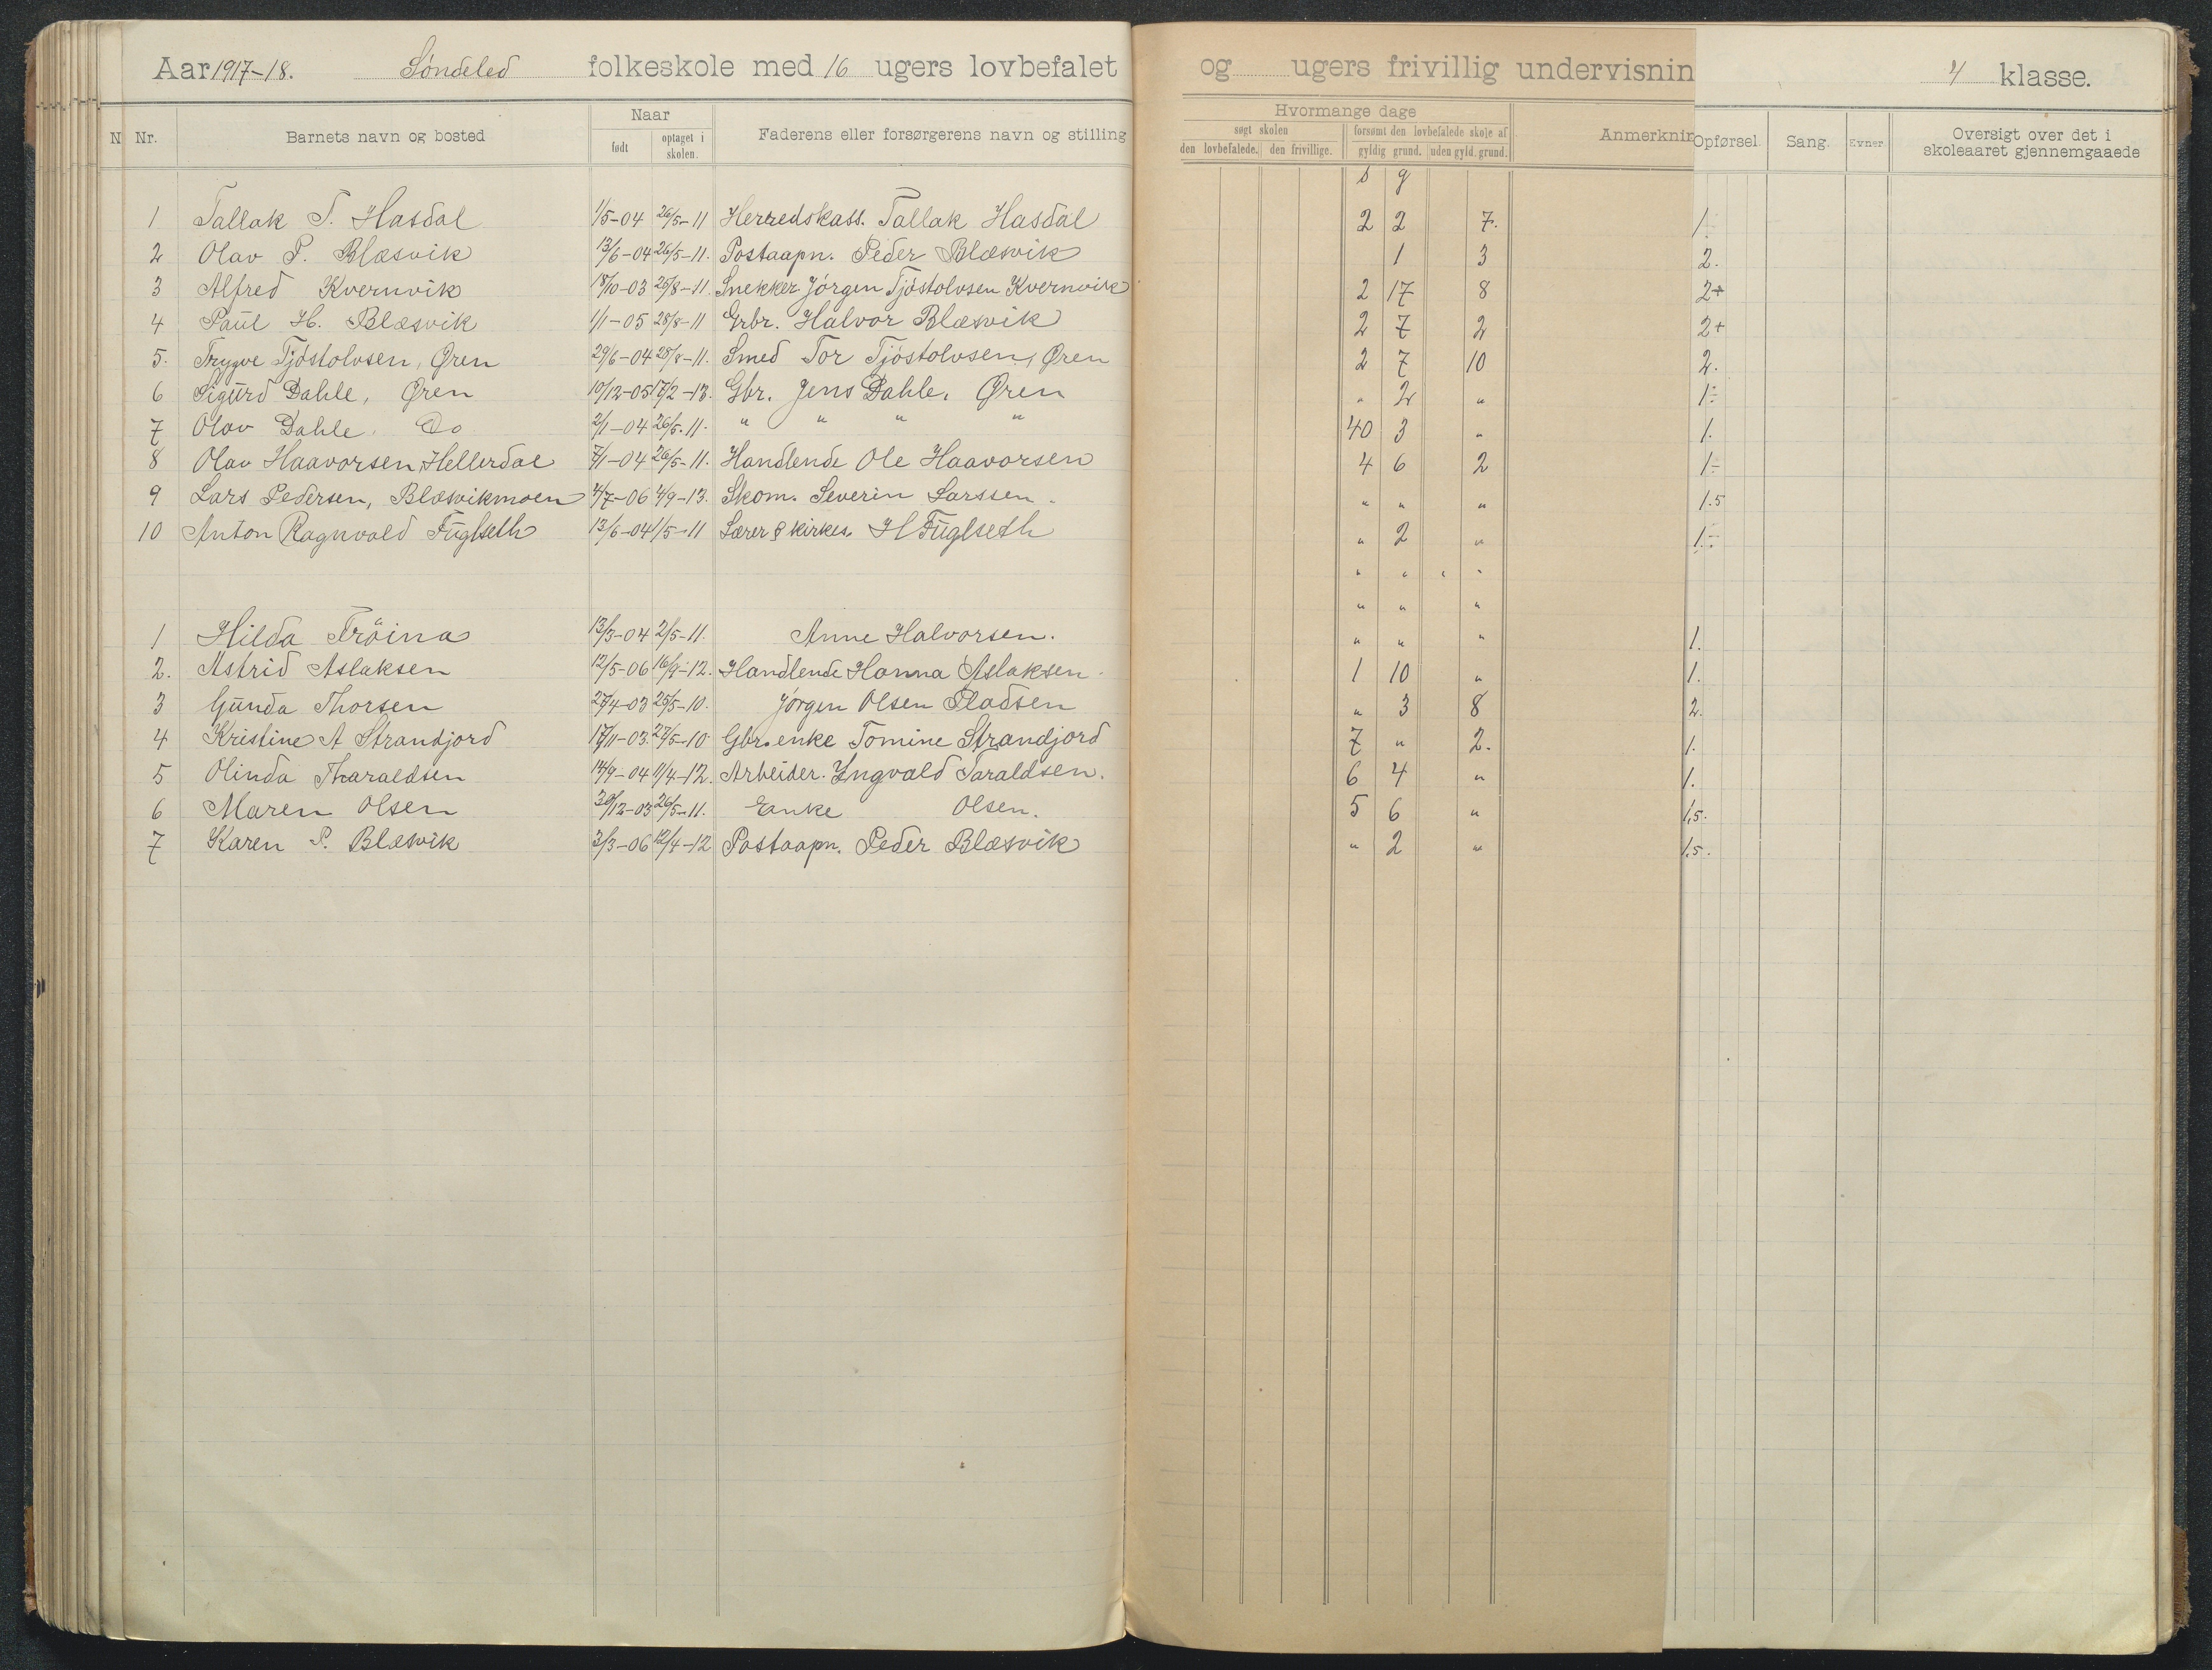 Aar 1917-18. Søndeled folkeskole med 16 ugers lovbefalet og ugers frivillig undervisnin 4 klasse.
N Nr. Barnets navn og bosted Naar født optaget i skolen. Faderens eller forsørgerens navn og stilling Hvormange dage søgt skolen den lovbefalede. den frivillige. forsømt den lovbefalede skole af gyldig grund. uden gyld. grund. Anmerknin Opførsel. Sang. Evner. Oversigt over det i skoleaaret gjennemgaaede
s g
1 Tallak T. Hasdal 1/5-04 26/5-11 Herredskass. Tallak Hasdal 2 2 7. 1÷
2 Olav P. Blæsvik 13/6-04 26/5-11. Postaapn. Peder Blæsvik 1 3 2.
3 Alfred Kvernvik 18/10-03 25/8-11. Snekker Jórgen Tjóstolvsen Kvernvik 2 17 8 2+
4 Paul H. Blæsvik 1/1-05 28/8-11 Grbr. Halvor Blæsvik 2 7 2 2+
5. Trygve Tjóstolvsen, Øren 29/6-04 28/8-11. Smed Tor Tjóstolvsen, Øren 2 7 10 2.
6 Sigurd Dahle, Øren 10/12-05 17/2-13. Gbr. Jens Dahle, Øren " 2 " 1÷
7 Olav Dahle Do 2/1-04 26/5-11. " " " " 40 3 " 1.
8 Olav Haavorsen, Hellerdal 7/1-04 26/5-11. Handlende Ole Haavorsen 4 6 2 1÷
9 Lars Pedersen, Blæsvikmoen 4/7-06 4/9-13. Skom. Severin Larssen. " " " 1.5
10 Anton Ragnvald Fuglseth 13/6-04 1/5-11 Lærer & kirkes. H Fuglseth " 2 " 1÷
" " " "
" " "
1 Hilda Tröina 13/3-04 2/5-11. Anne Halvorsen. " " " 1.
2. Astrid Aslaksen 12/5-06 16/9-12. Handlende Hanna Aslaksen. 1 10 " 1.
3 Gunda Thorsen 27/4-03 25/5-10. Jórgen Olsen Pladsen " 3 8 2.
4 Kristine A Strandjord 17/11-03. 27/5-10 Gbr. enke Tomine Strandjord 7 " 2. 1.
5 Olinda Tharaldsen 14/9-04 11/4-12. Arbeider. Yngvald Taraldsen. 6 4 " 1.
6 Maren Olsen 30/12-03 26/5-11. Enke Olsen. 5 6 " 1,5.
7 Karen P. Blæsvik 3/3-06 12/4-12 Postaapn. Peder Blæsvik " 2 " 1,5.